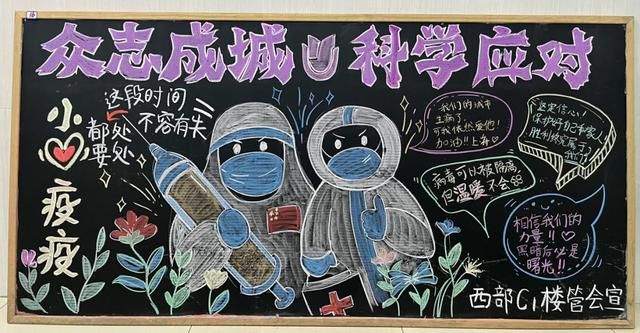 众志成城 科学应对
小♡疫疫
这段时间
处处
都要
不容有失
我们的城市
生病了
可我依然爱他!
加油!! 上海♡
坚定信心!
保护好自己和家人,
胜利终究属于
我们!
病毒可以被隔离
但温暖不会
相信我们的
力量!! ♡
黑暗后必是
曙光!!
西部C1楼管会宣